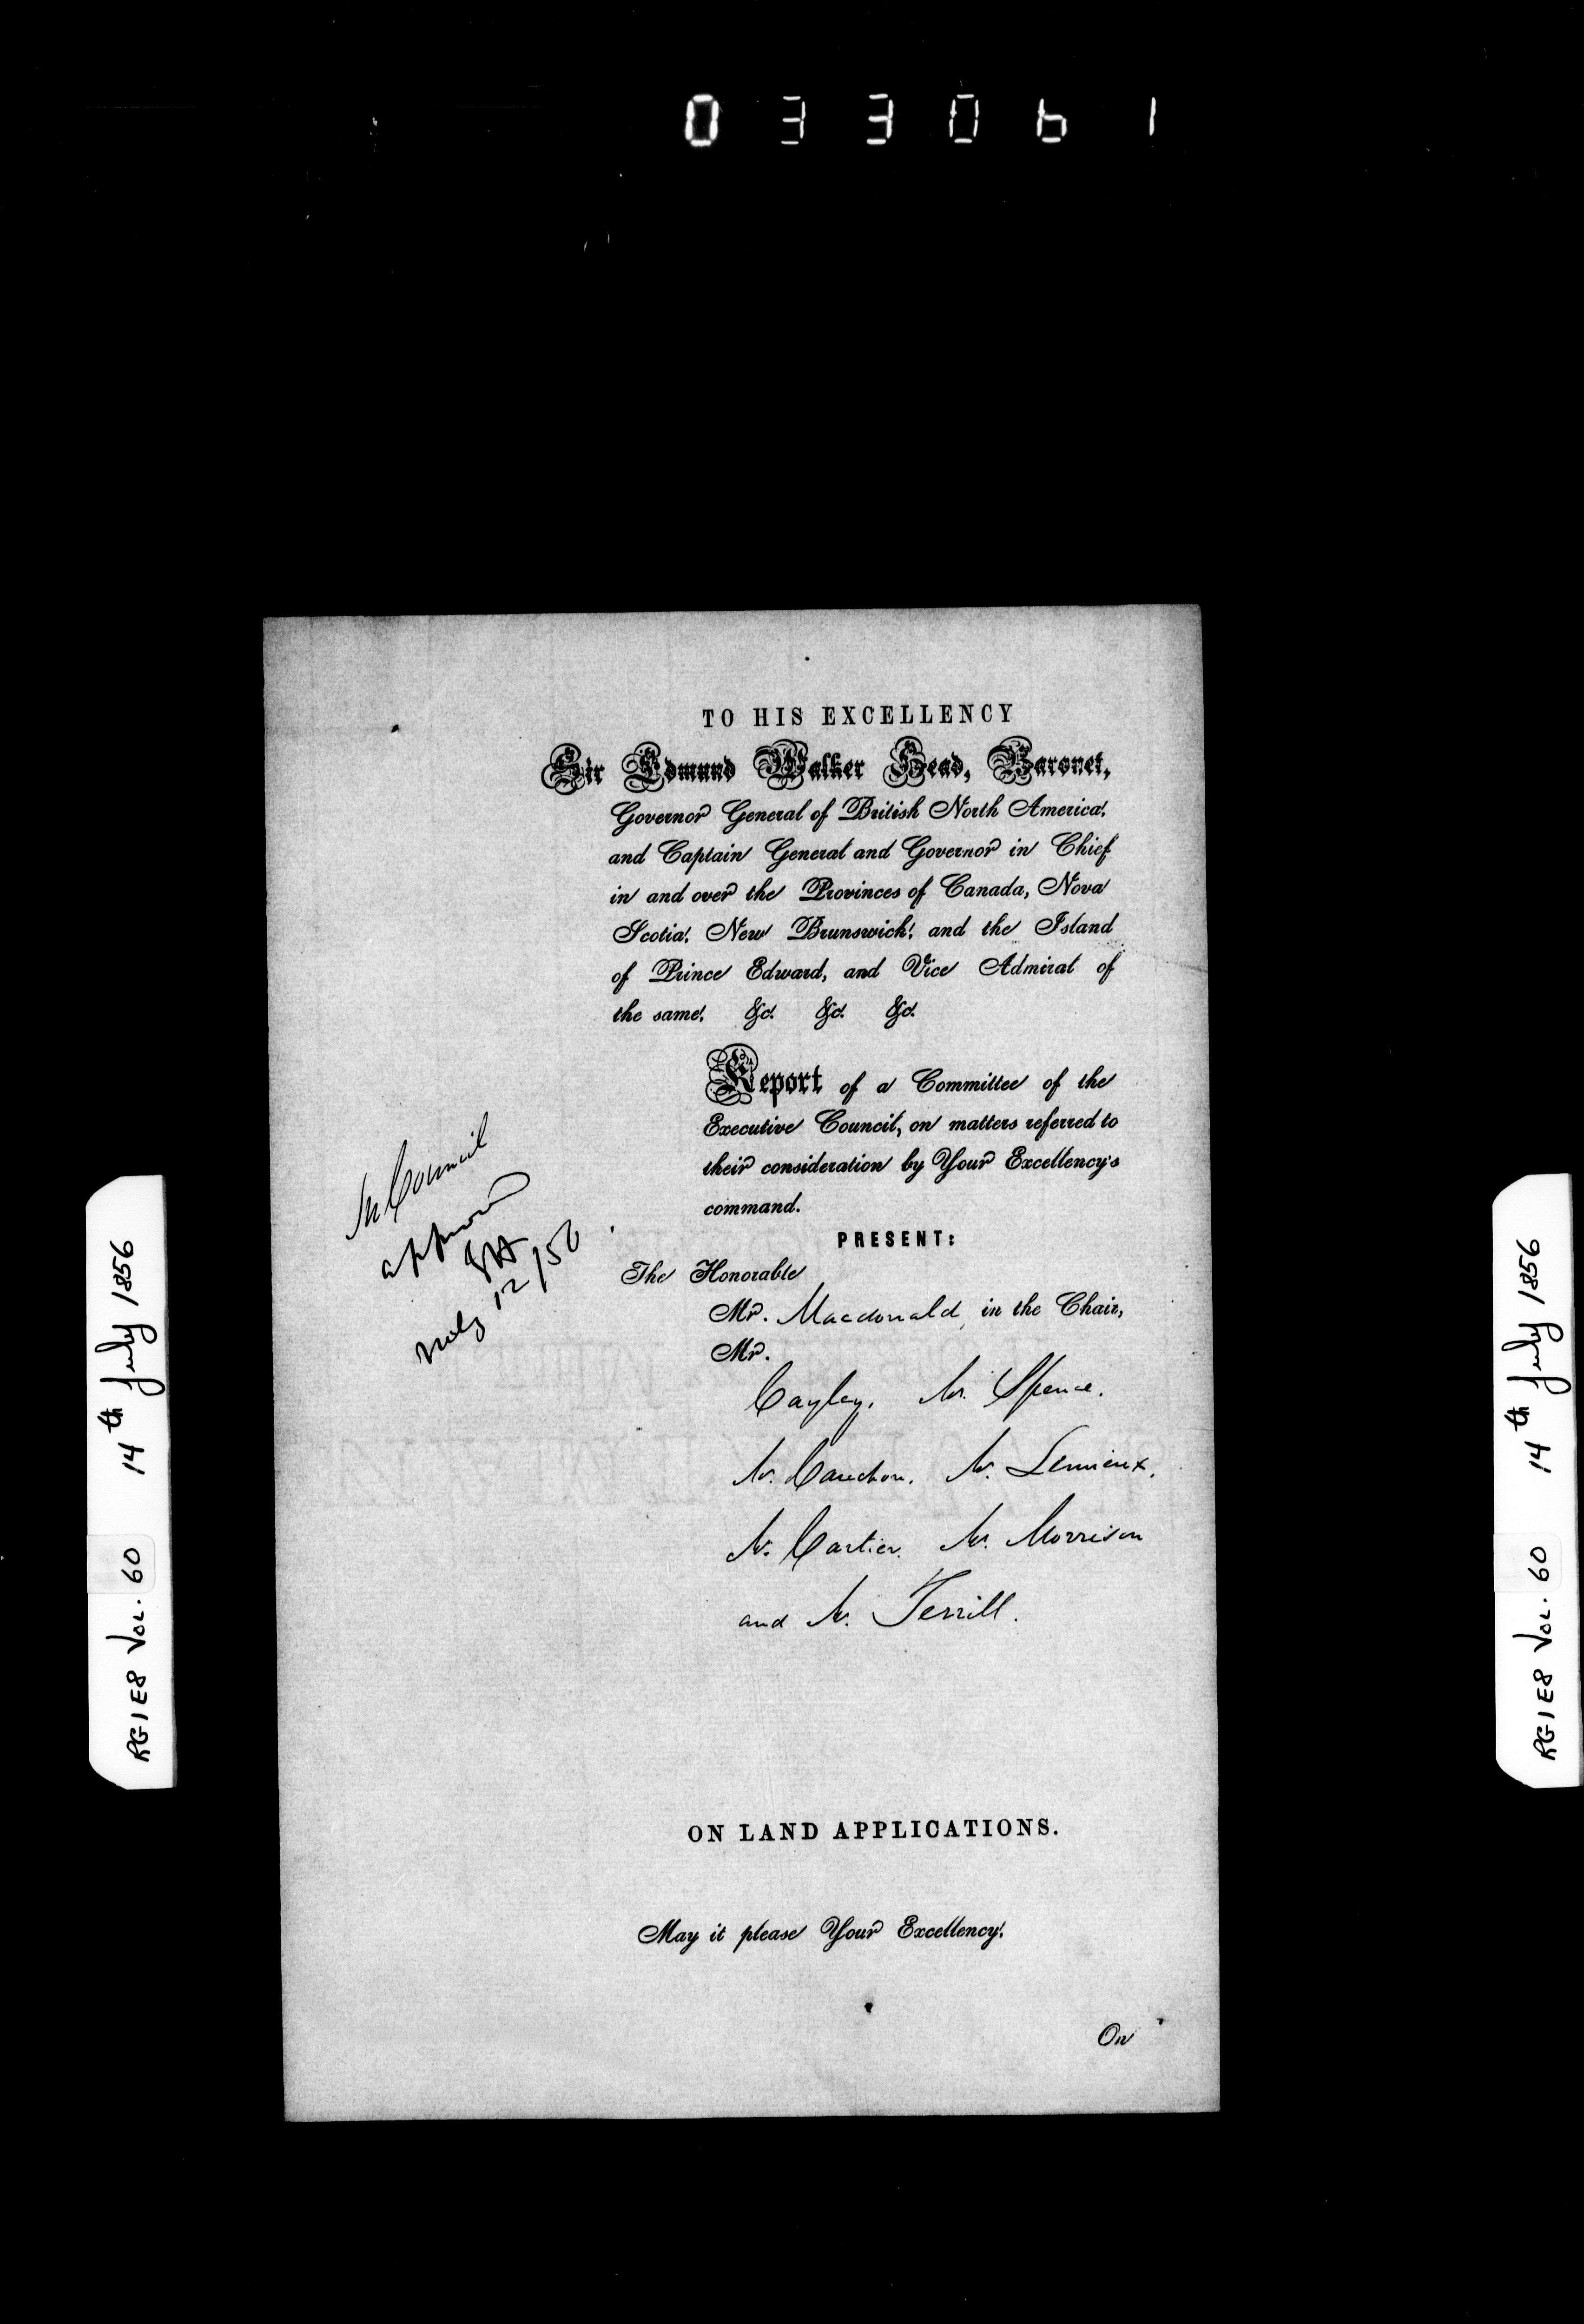 033061
TO HIS EXCELLENCY
Sir Edmund Walker Head, Baronet,
Governor General of British North America,
and Captain General and Governor in Chief
in and over the Provinces of Canada, Nova
Scotia, New Brunswick, and the Island
of Prince Edward, and Vice Admiral of
the same, &c. &c. &c.
Report of a Committee of the
Executive Council, on matters referred to
their consideration by Your Excellency's
command.
In Council
approved
July 12/56
PRESENT:
The Honorable
Mr. Macdonald, in the Chair,
Mr.
Cayley, Mr. Spence.
Mr. Cauchon. Mr. Lemieux.
Mr. Cartier. Mr. Morrison
and Mr. Terrill.
ON LAND APPLICATIONS.
May it please Your Excellency,
On
RG1E8 Vol. 60 14th July 1856
RG1E8 Vol. 60 14th July 1856